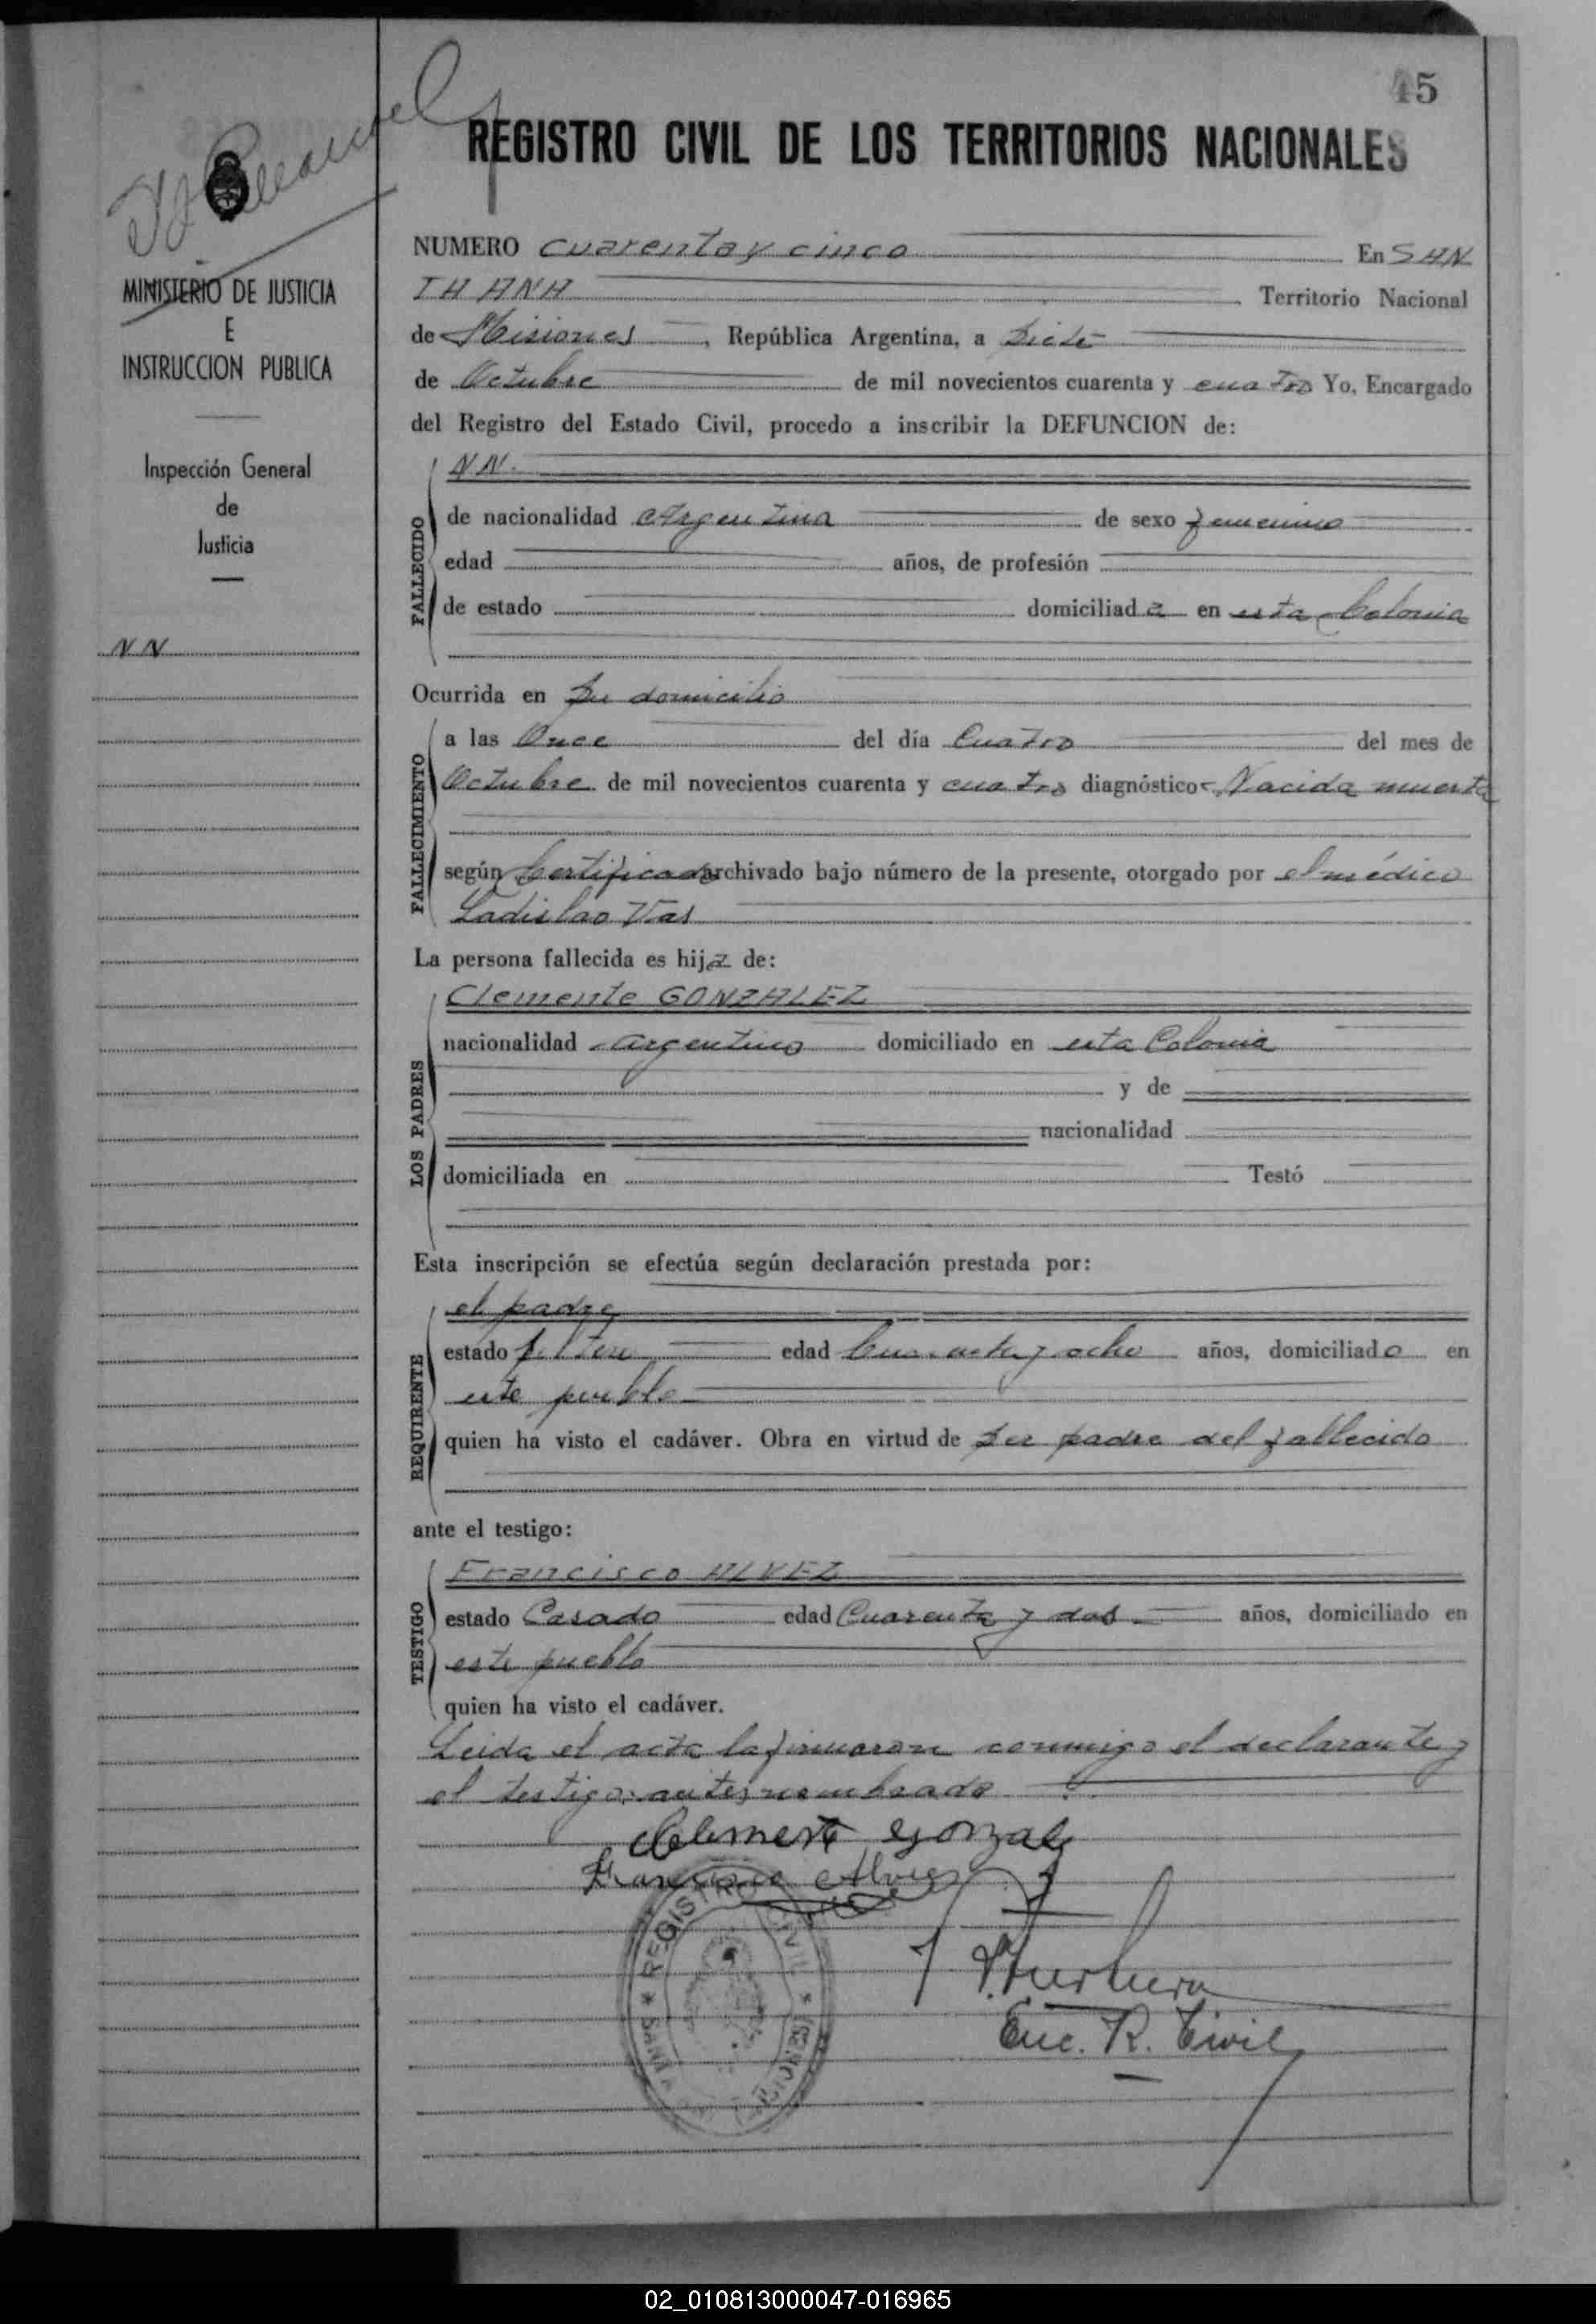 45
REGISTRO CIVIL DE LOS TERRITORIOS NACIONALES
MINISTERIO DE JUSTICIA
E
INSTRUCCION PUBLICA
Inspección General
de
Justicia
NN
NUMERO cuarenta y cinco En SAN
TA ANA Territorio Nacional
de Misiones, República Argentina, a Siete
de Octubre de mil novecientos cuarenta y cuatro Yo, Encargado
del Registro del Estado Civil, procedo a inscribir la DEFUNCION de:
FALLECIDO
NN.
de nacionalidad Argentina de sexo femenino
edad años, de profesión
de estado domiciliada en esta Colonia
Ocurrida en su domicilio
FALLECIMIENTO
a las Once del día Cuatro del mes de
Octubre de mil novecientos cuarenta y cuatro diagnóstico Nacida muerta
según Certificado archivado bajo número de la presente, otorgado por el médico
Ladislao
La persona fallecida es hija de:
LOS PADRES
Clemente GONZALEZ
nacionalidad argentino domiciliado en esta Colonia
y de
nacionalidad
domiciliada en Testó
Esta inscripción se efectúa según declaración prestada por:
REQUIRENTE
el padre
estado soltero edad Cuarenta y ocho años, domiciliado en
este pueblo
quien ha visto el cadáver. Obra en virtud de ser padre del fallecido
ante el testigo:
TESTIGO
Francisco ALVEZ
estado Casado edad Cuarenta y dos años, domiciliado en
este pueblo
quien ha visto el cadáver.
Leida el acta la firmaron conmigo el declarante y
el testigo antes nombrado
Clemente Gonzale
Francisco Alvez
REGISTRO CIVIL * MISIONES * SANTA
Enc. R. Civil
02_010813000047-016965